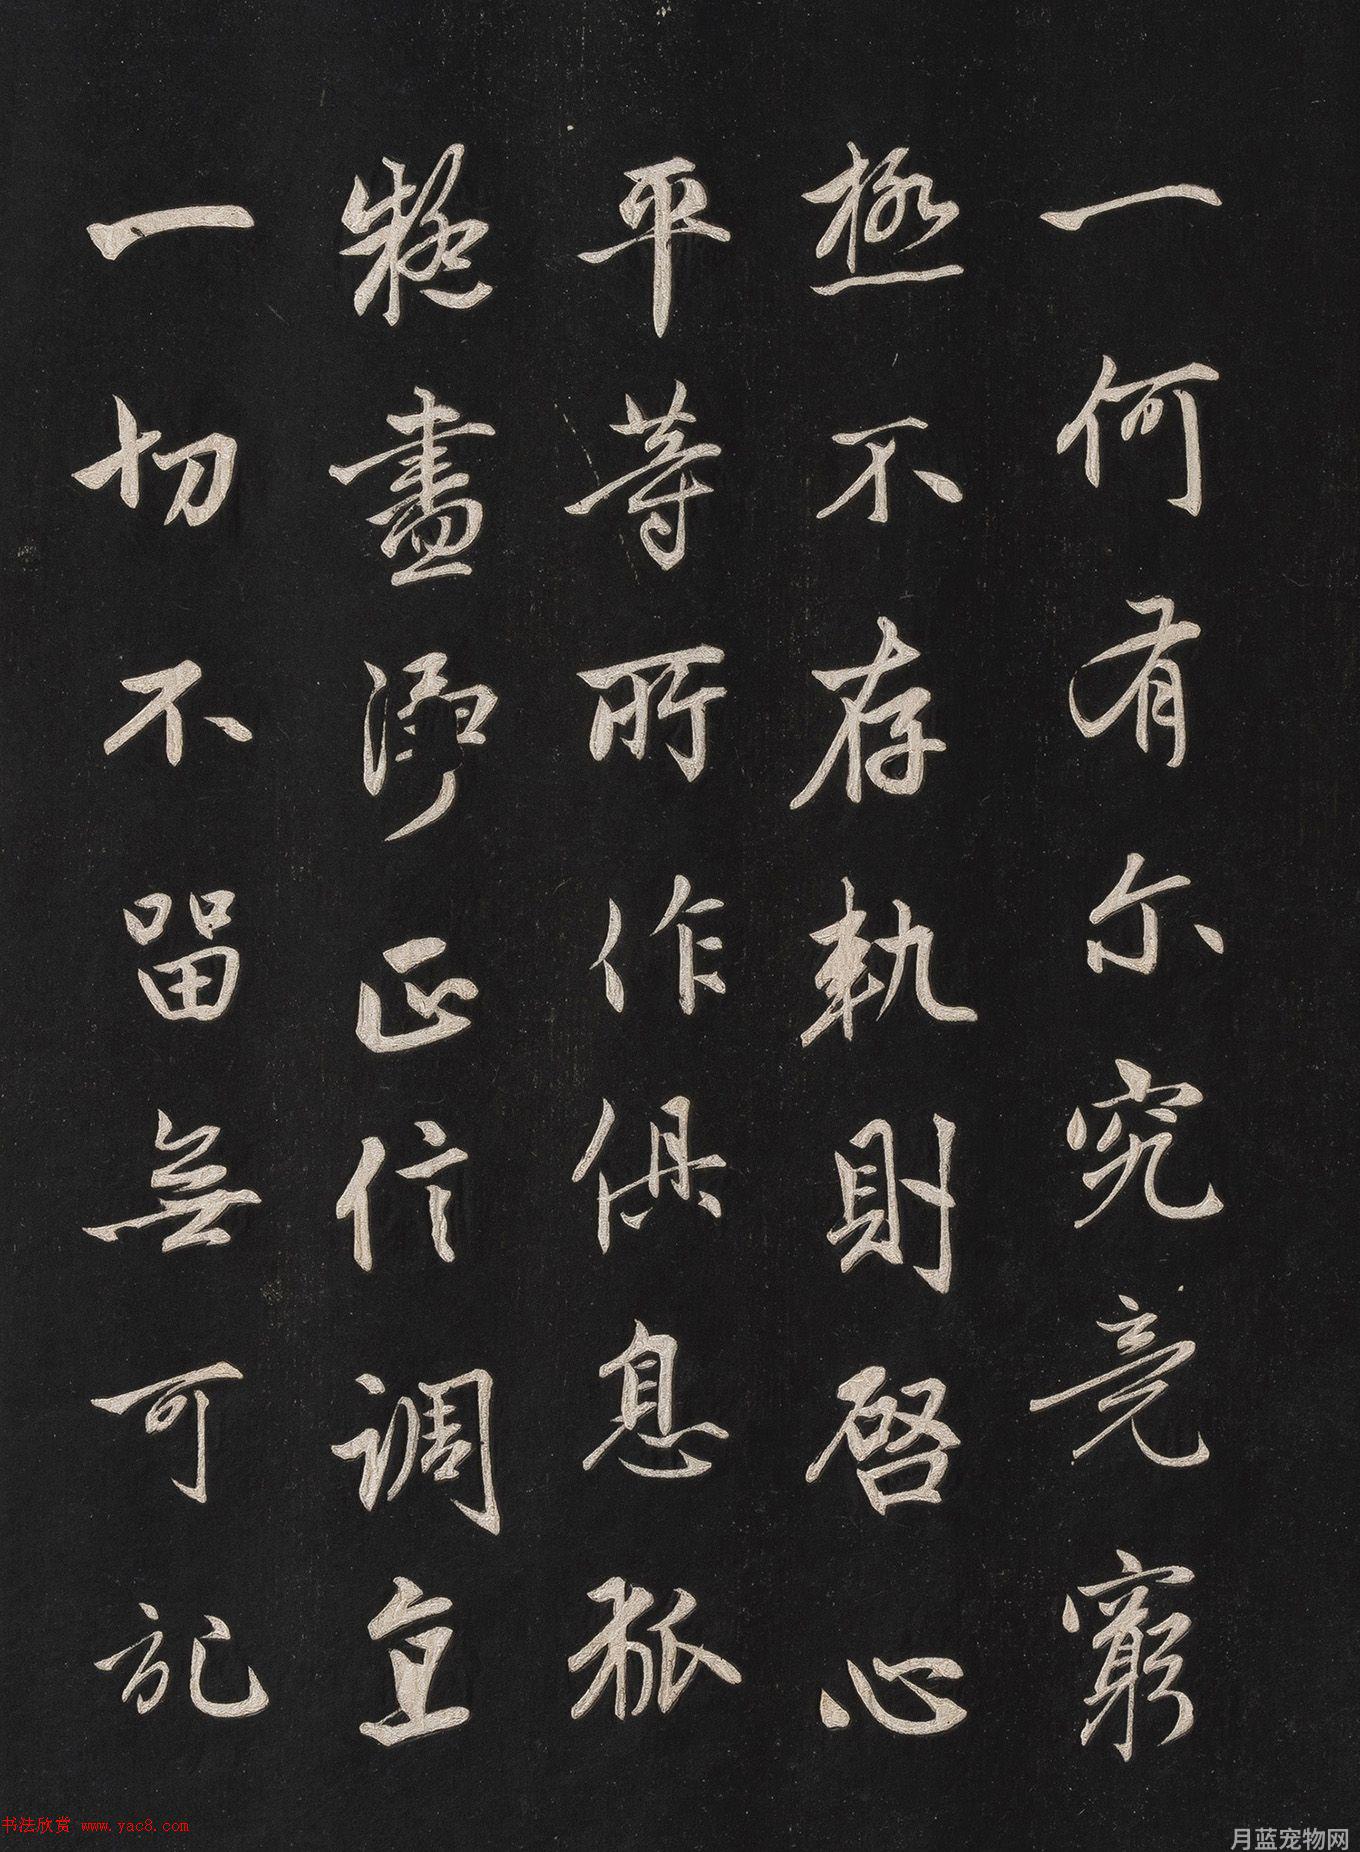 一何有尔究竟窮
極不存軌則啓心
平等所作俱息狐
疑盡淨正信調直
一切不留無可記
书法欣赏 www.yac8.com
月蓝宠物网